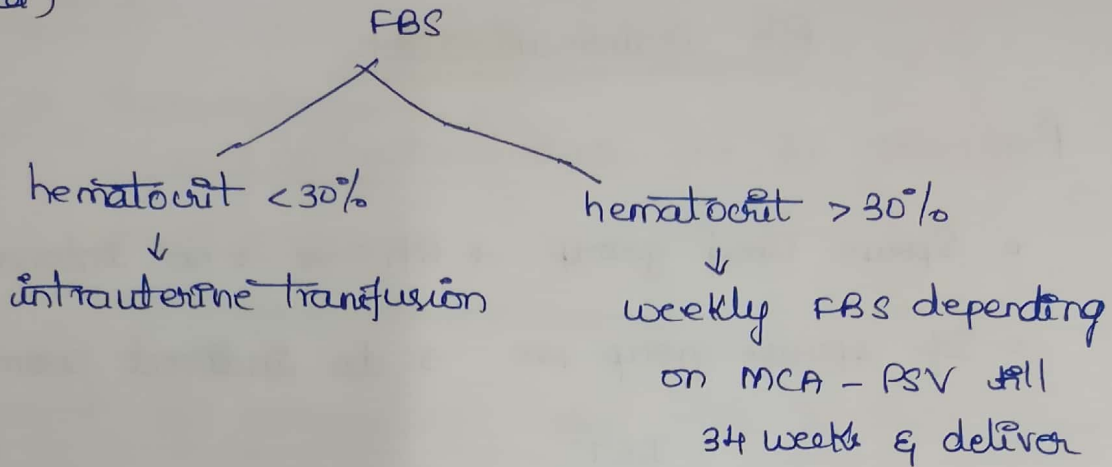 FBS
hematocrit <30%
↓
intrauterine transfusion
hematocrit >30%
↓
weekly FBS depending
on MCA - PSV till
34 weeks & deliver